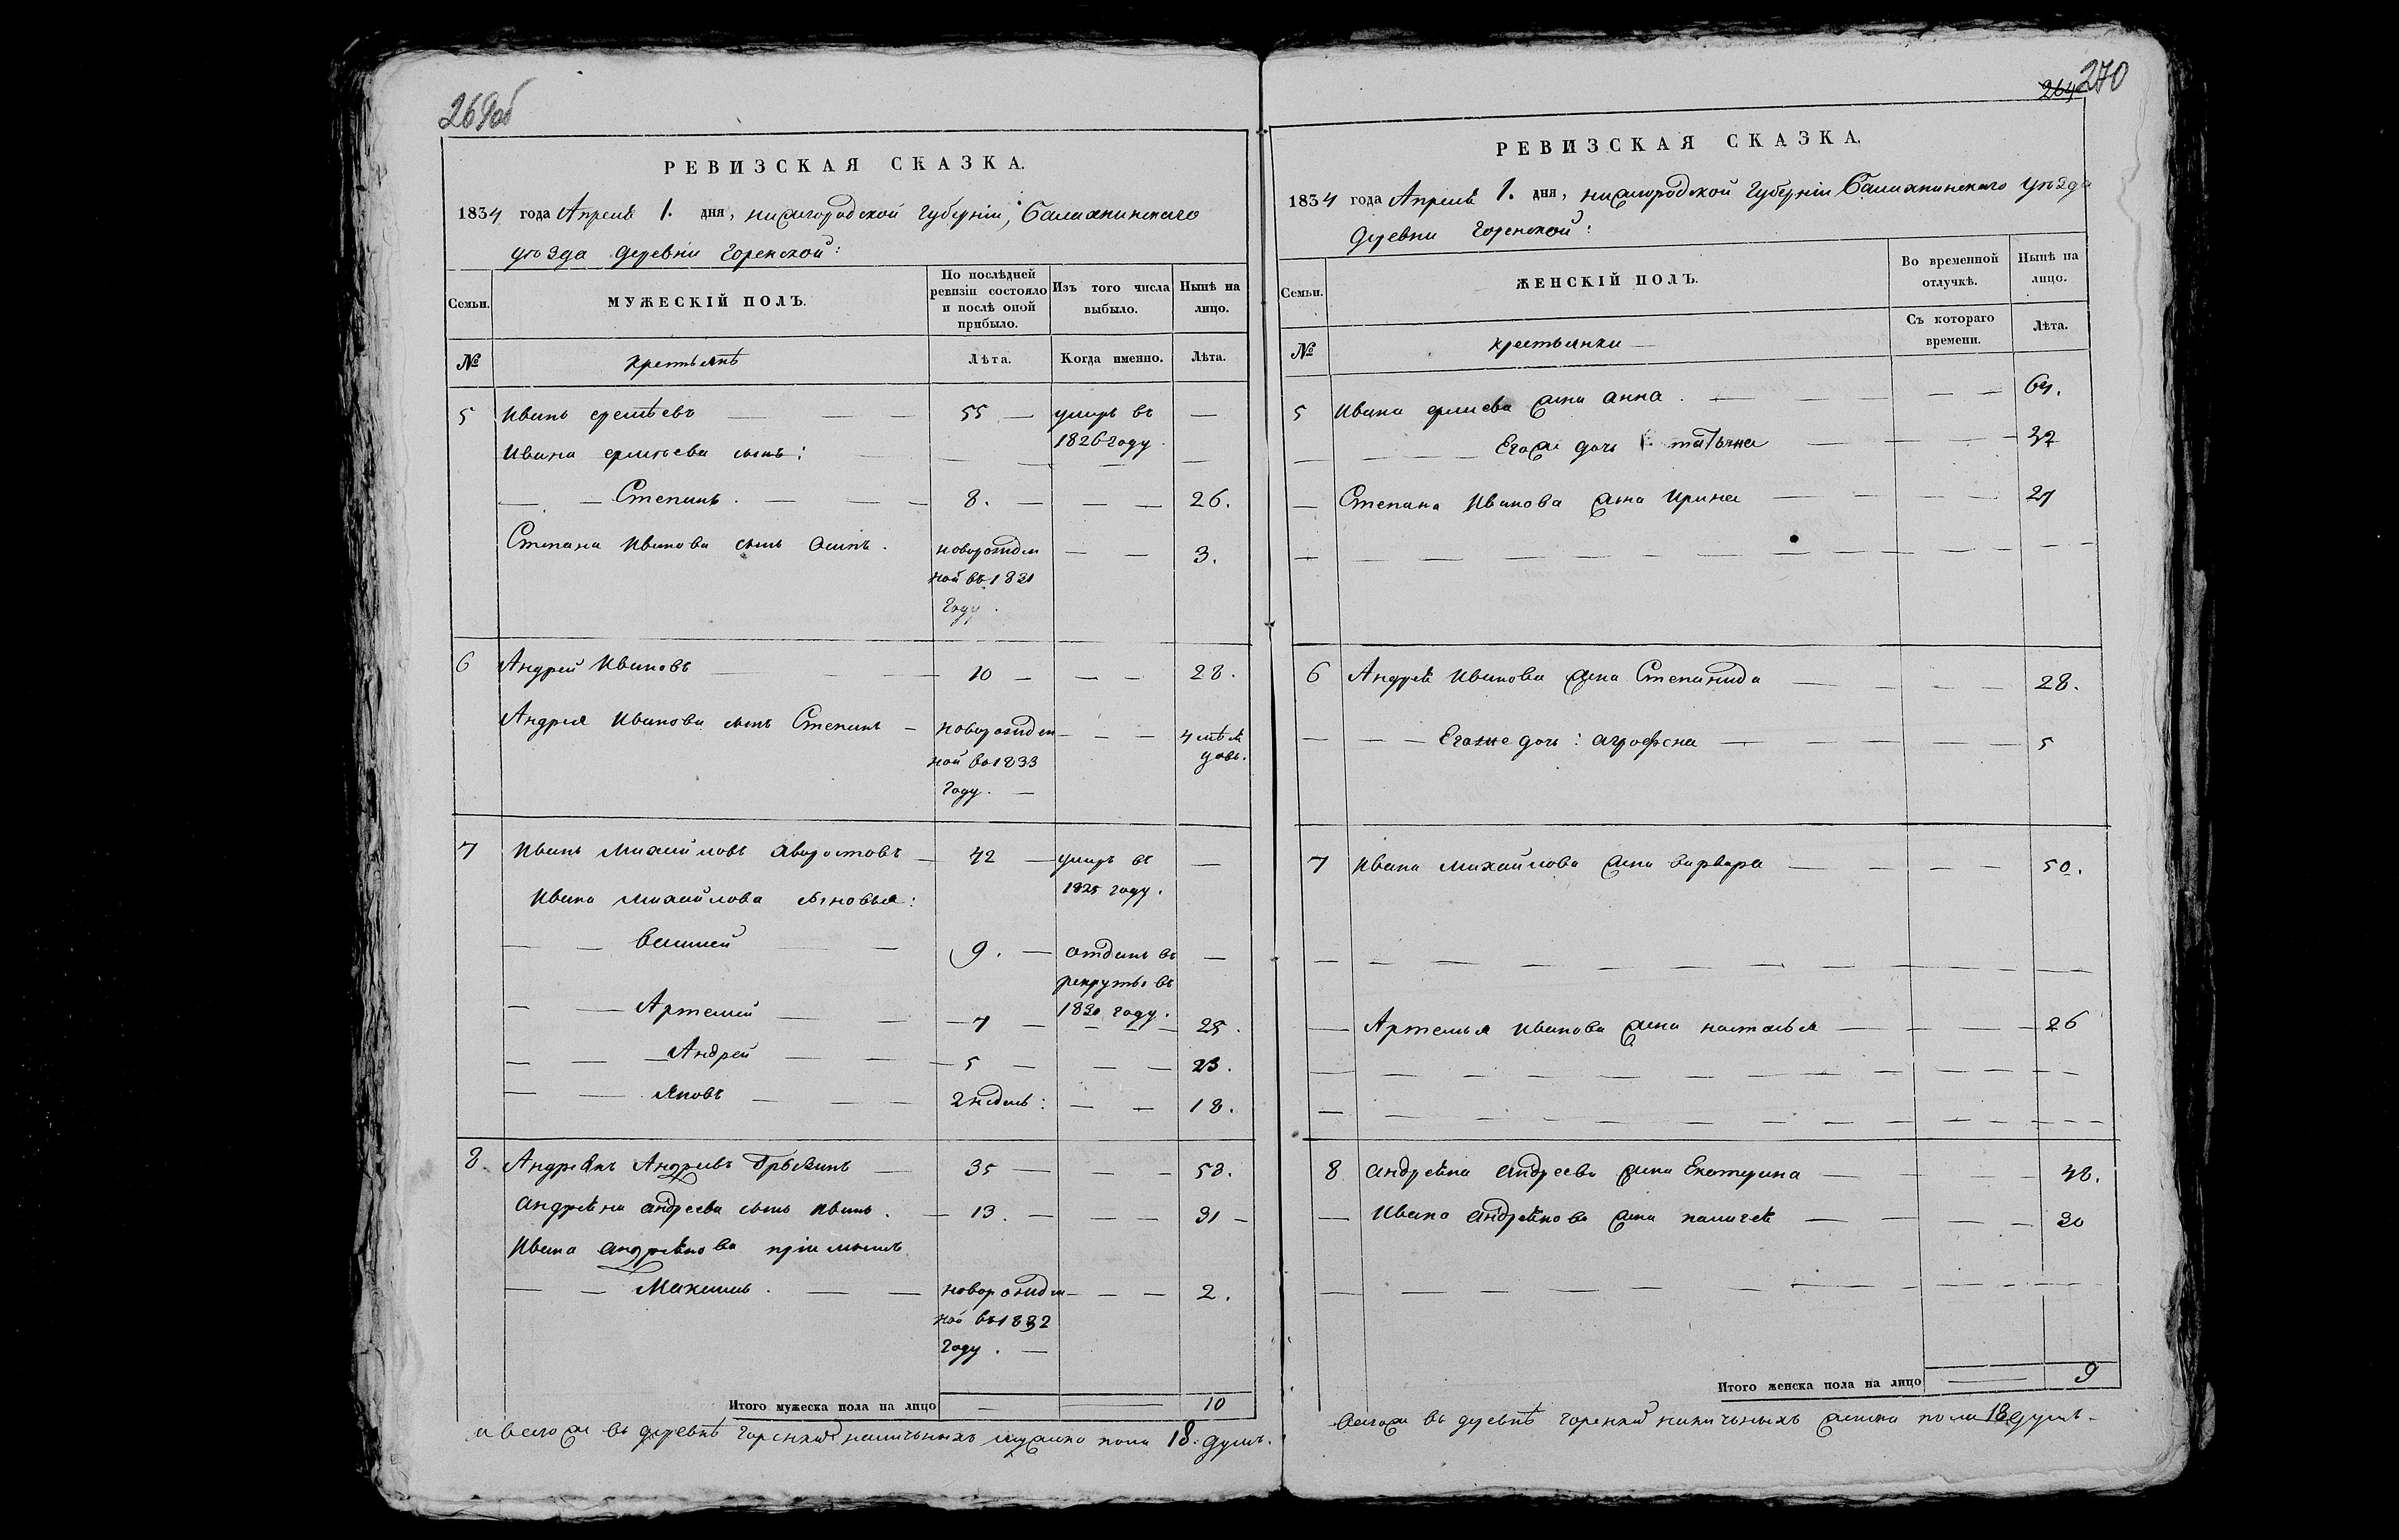 269об
РЕВИЗСКАЯ СКАЗКА.
1834 года Апреля 1. дня, нижегородской губернїи, Балахнинскаго
уезда деревни Горенской:
Семьи.
МУЖЕСКІЙ ПОЛЪ.
По послѣдней ревизіи состояло и послѣ оной прибыло.
Изъ того числа выбыло.
Нынѣ на лицо.
№
крестьянѣ
Лѣта.
Когда именно.
Лѣта.
5 Иванъ 55 умиръ въ
1826 году.
Ивана сынъ:
Степанъ. 8. 26.
Степана Иванова сынъ Осипъ. новорожден 3.
ной въ 1831
году.
6 Андрей Ивановъ 10 28.
Андрея Иванова сынъ Степанъ новорожден 4 мѣся
ной во 1833 цовъ.
году.
7 Иванъ Михайловъ 42 умиръ въ
Ивана Михайлова сыновья: 1825 году.
Василей 9. отданъ въ
рекруты въ
Артемей 7 1830 году. 25.
Андрей 5 23.
Яковъ 2 недель: 18.
8. Андреянъ Андреевъ 35 53.
Андреяна андреева сынъ Иванъ. 13. 31
Ивана андреянова пріимышъ
Максимъ. новорожден 2.
ной въ 1832
году.
Итого мужеска пола на лицо 10
а всего же въ деревнѣ Горенкой наличныхъ мужска пола 18. душъ.
264 270
РЕВИЗСКАЯ СКАЗКА.
1834 года Апреля 1. дня, нижегородской Губерніи Балахнинскаго уезда
деревни Горенской:
Семьи.
ЖЕНСКІЙ ПОЛЪ.
Во временной отлучкѣ.
Нынѣ на лицо.
№
крестьянки
Съ котораго времени.
Лѣта.
5 Ивана жена анна. 64.
Егоже дочь татьяна 32
Степана Иванова жена Ирина 27
6 Андрея Иванова жена Степанида 28.
Егоже дочь: аграфена 5
7 Ивана Михайлова жена варвара 50.
Артемья Иванова жена наталья 26
8 андреяна андреева жена Екатерина 48.
Ивана андреянова жена 30
Итого женска пола на лицо 9
всего же въ деревнѣ Горенкой наличныхъ женска пола 18 душъ